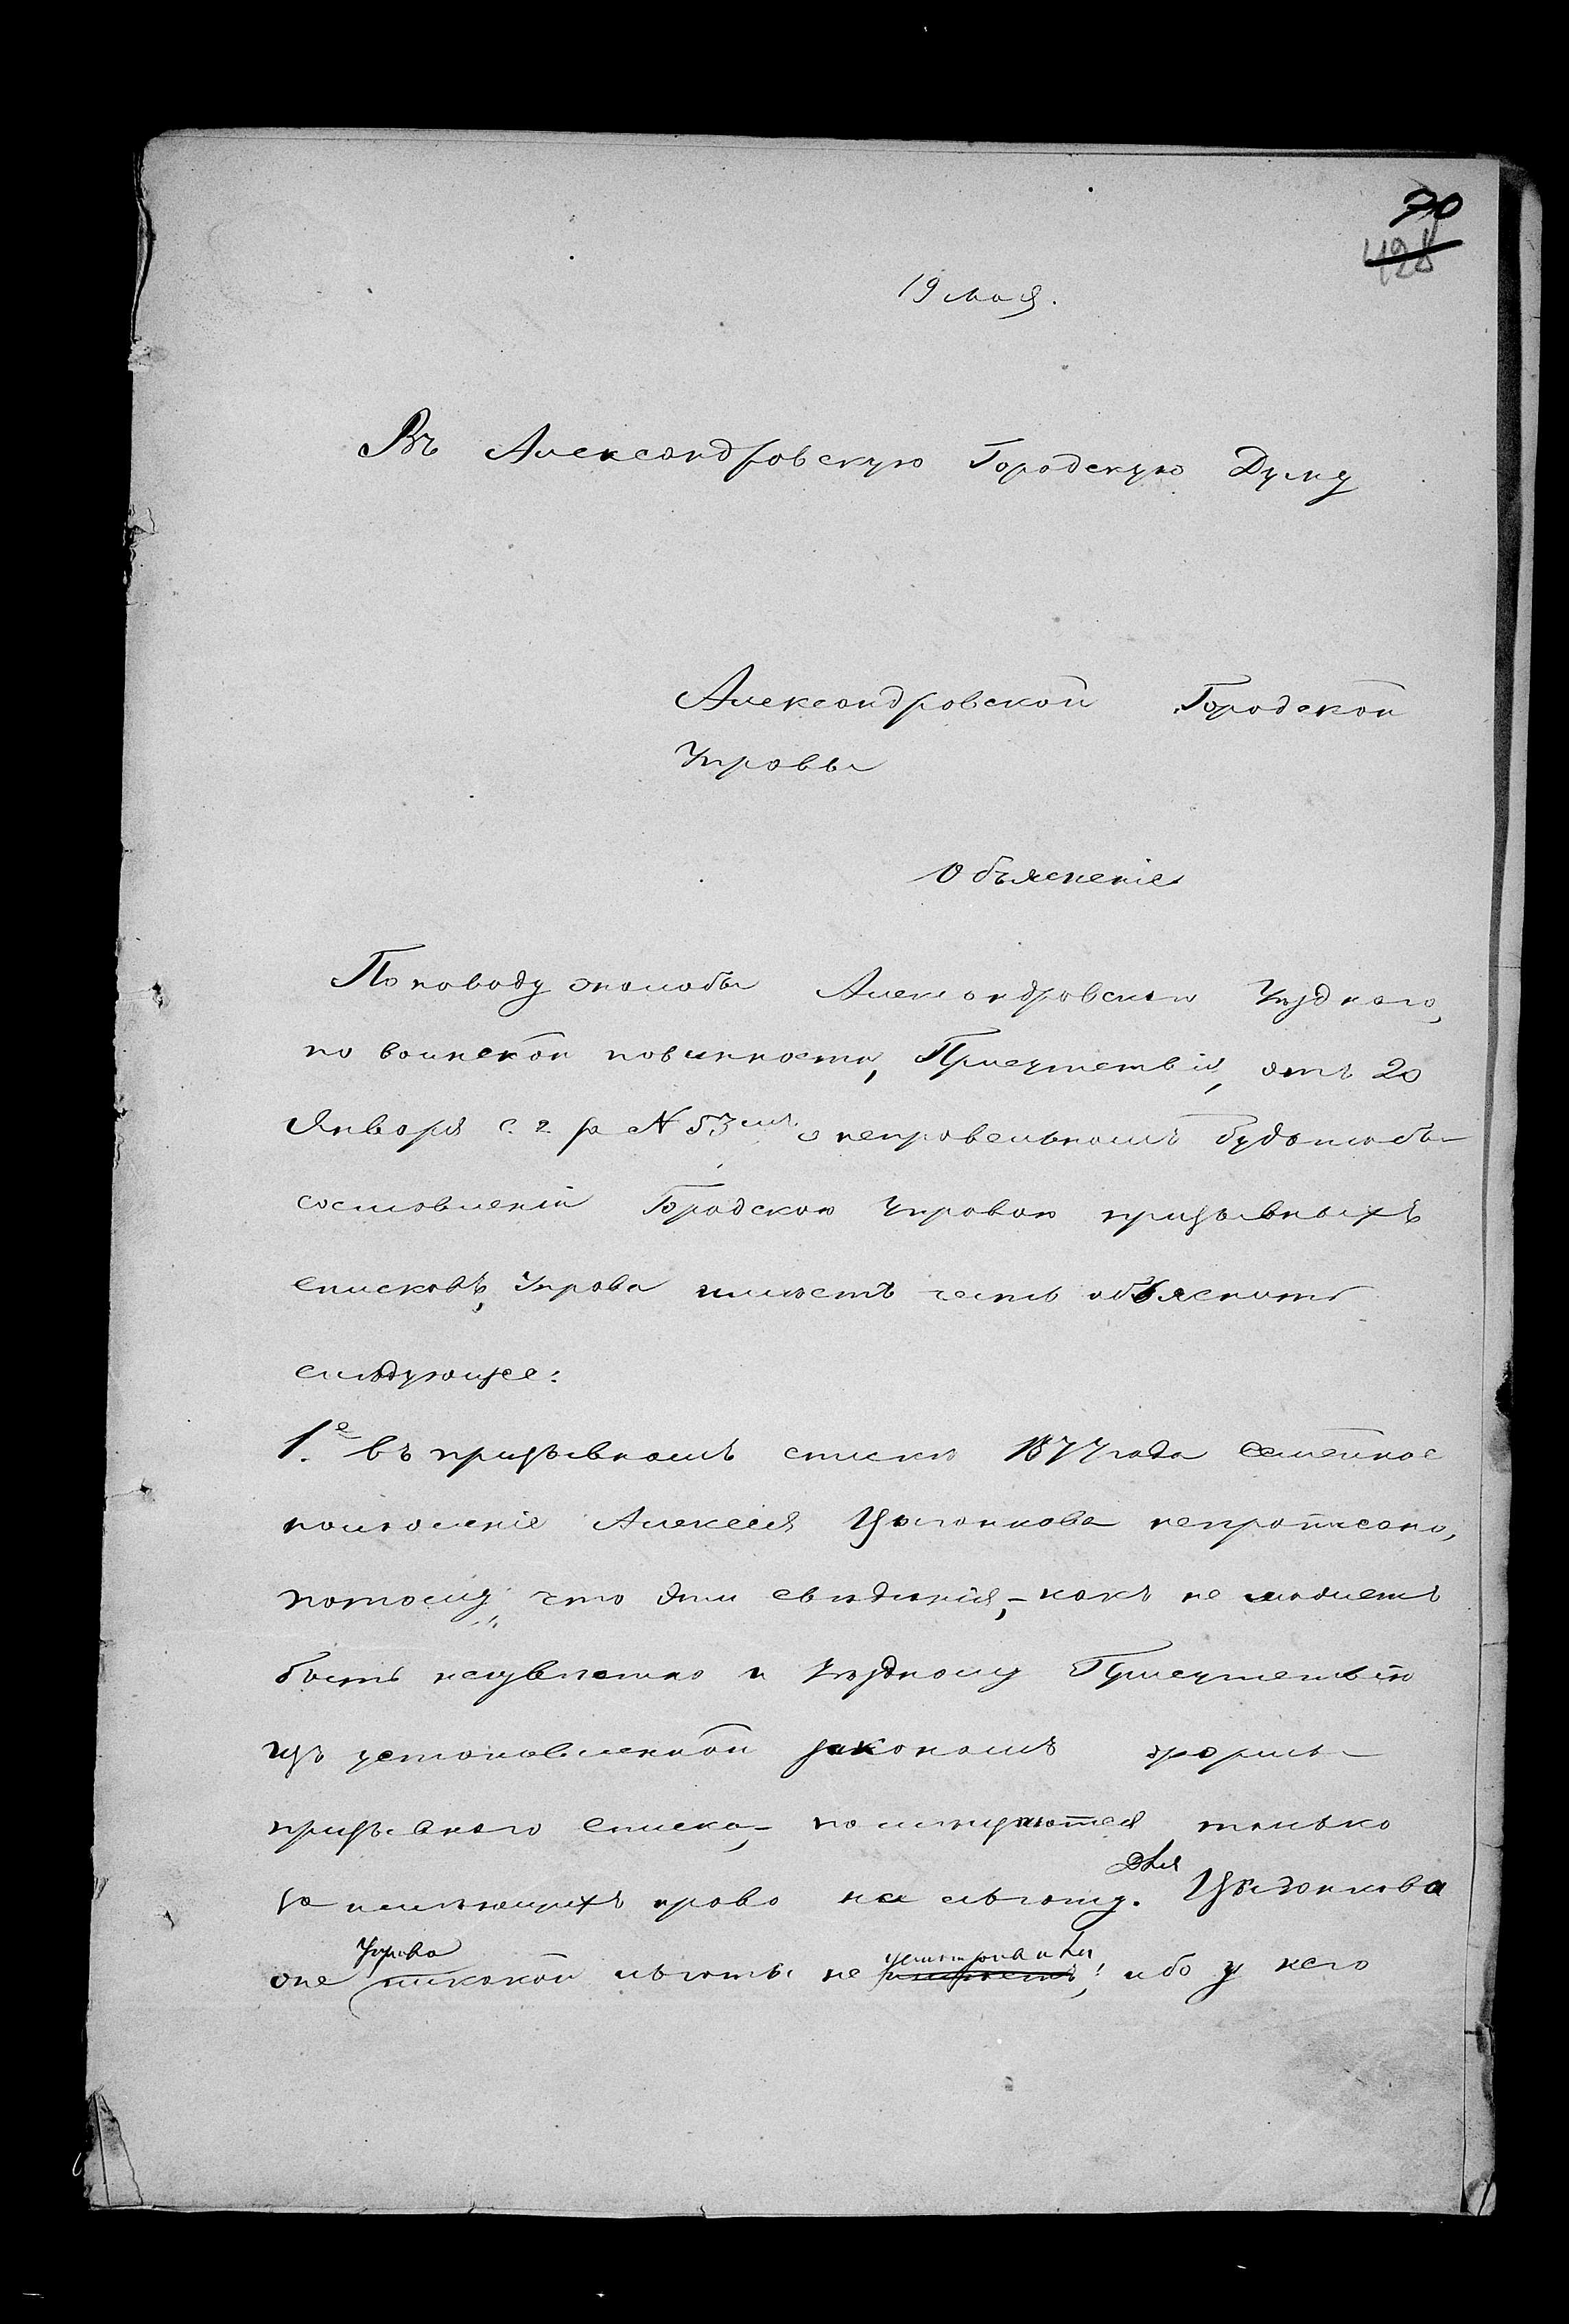 70
428
19 мая.
Въ Александровскую Городскую Думу
Александровской Городской
Управы
Объясненіе
По поводу жалобы Александровскаго Уѣзднаго,
по воинской повинности, Присутствія, отъ 20
Января с. г. за № 53мъ о неправельномъ будто-бы
составленіи Городскою Управою призывныхъ
списковъ, Управа имѣетъ честь объяснить
слѣдующее:
1.е въ призывномъ спискѣ 1877 года семейное
положеніе Алексея Цыганкова непрописано,
потому, что эти свѣдѣнія, - какъ не можетъ
быть неизвѣстно и Уѣздному Присутствію
изъ установленной закономъ формы
призывнаго списка, - помѣщаются только
за имѣющихъ право на льготу. Для Цыганкова
оне Управа никакой льготы не усмотрѣла имѣетъ, ибо у него